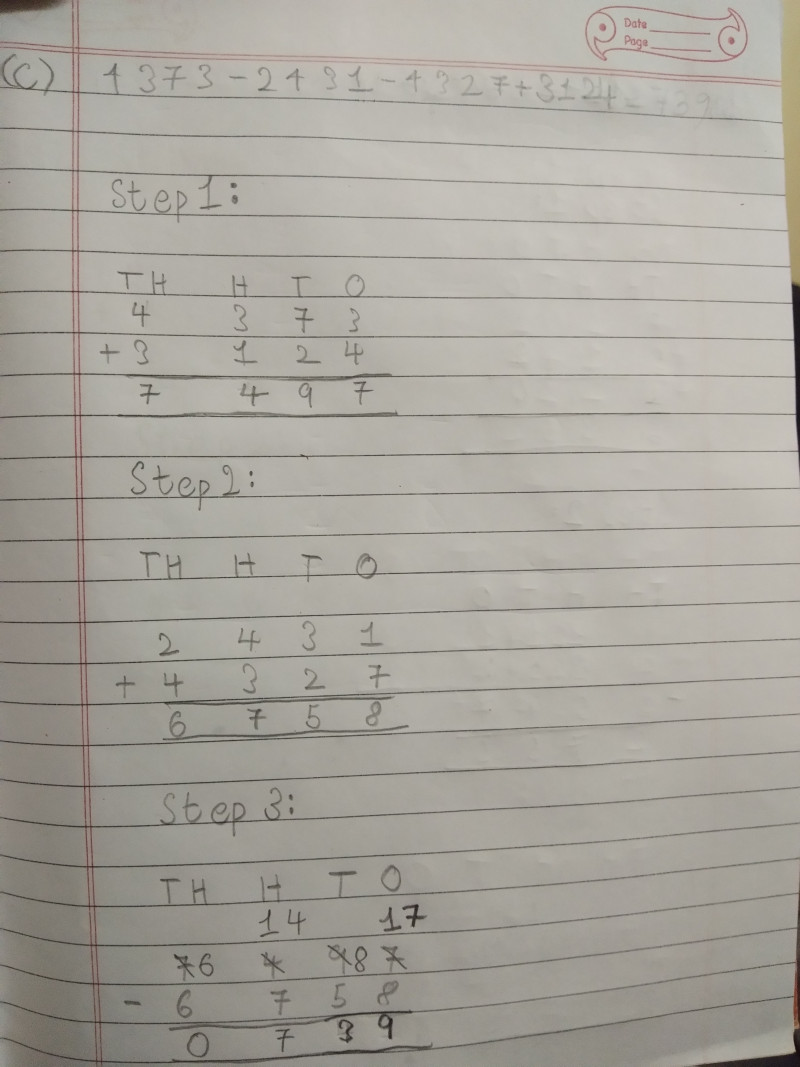 Date
Page
(C) 4373-2431-4327+3124=739
Step 1:
TH H T O
4 3 7 3
+ 3 1 2 4
7 4 9 7
Step 2:
TH H T O
2 4 3 1
+ 4 3 2 7
6 7 5 8
Step 3:
TH H T O
14 17
76 4 98 7
- 6 7 5 8
0 7 3 9